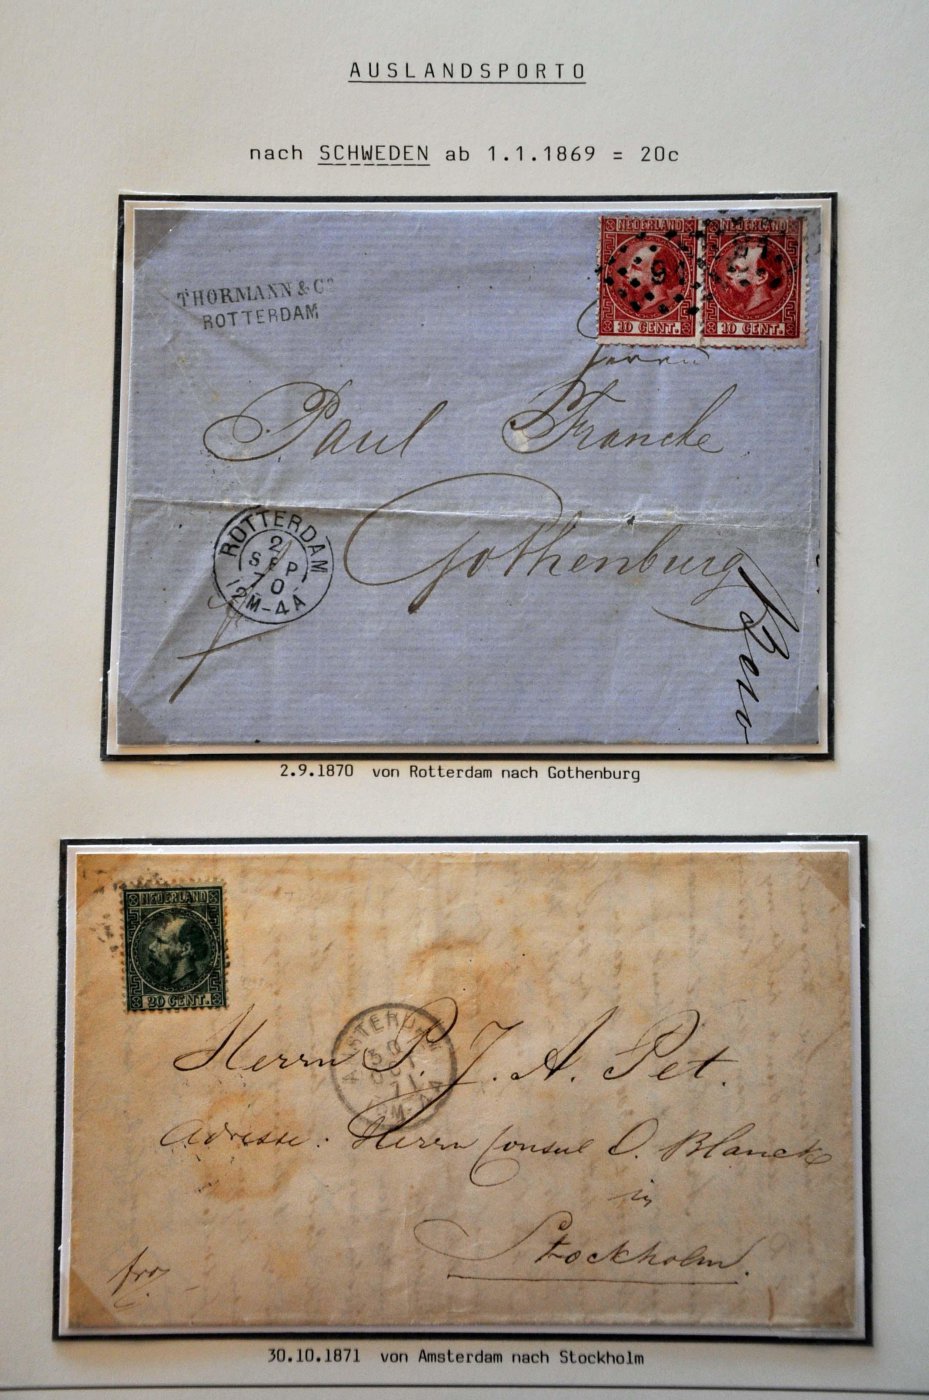 AUSLANDSPORTO
nach SCHWEDEN ab 1.1.1869 = 20c
NEDERLAND NEDERLAND
91 91
10 CENT. 10 CENT.
THORMANN & Co
ROTTERDAM
Herrn
Paul Francke
Gothenburg
ROTTERDAM
2
SEP
70
12M-4A
2.9.1870 von Rotterdam nach Gothenburg
NEDERLAND
20 CENT.
Herrn P. J. A. Pet.
AMSTERDAM
30
OCT
71
12M-4A
Adresse: Herrn Consul O. Blanck
in
Stockholm.
fro
30.10.1871 von Amsterdam nach Stockholm